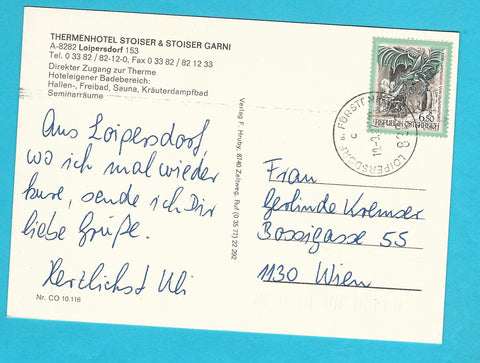 THERMENHOTEL STOISER & STOISER GARNI
A-8282 Loipersdorf 153
Tel. 0 33 82 / 82-12-0, Fax 0 33 82 / 82 12 33
Direkter Zugang zur Therme
Hoteleigener Badebereich:
Hallen-, Freibad, Sauna, Kräuterdampfbad
Seminarräume
Aus Loipersdorf,
wo ich mal wieder
kure, sende ich Dir
liebe Grüße.
Herzlichst Uli
Nr. CO 10.116
Verlag F. Hruby, 8740 Zeltweg, Ruf (0 35 77) 22 202
6.50
REPUBLIK
LOIPERSDORF
Frau
Gerlinde Kremser
Bossigasse 55
1130 Wien